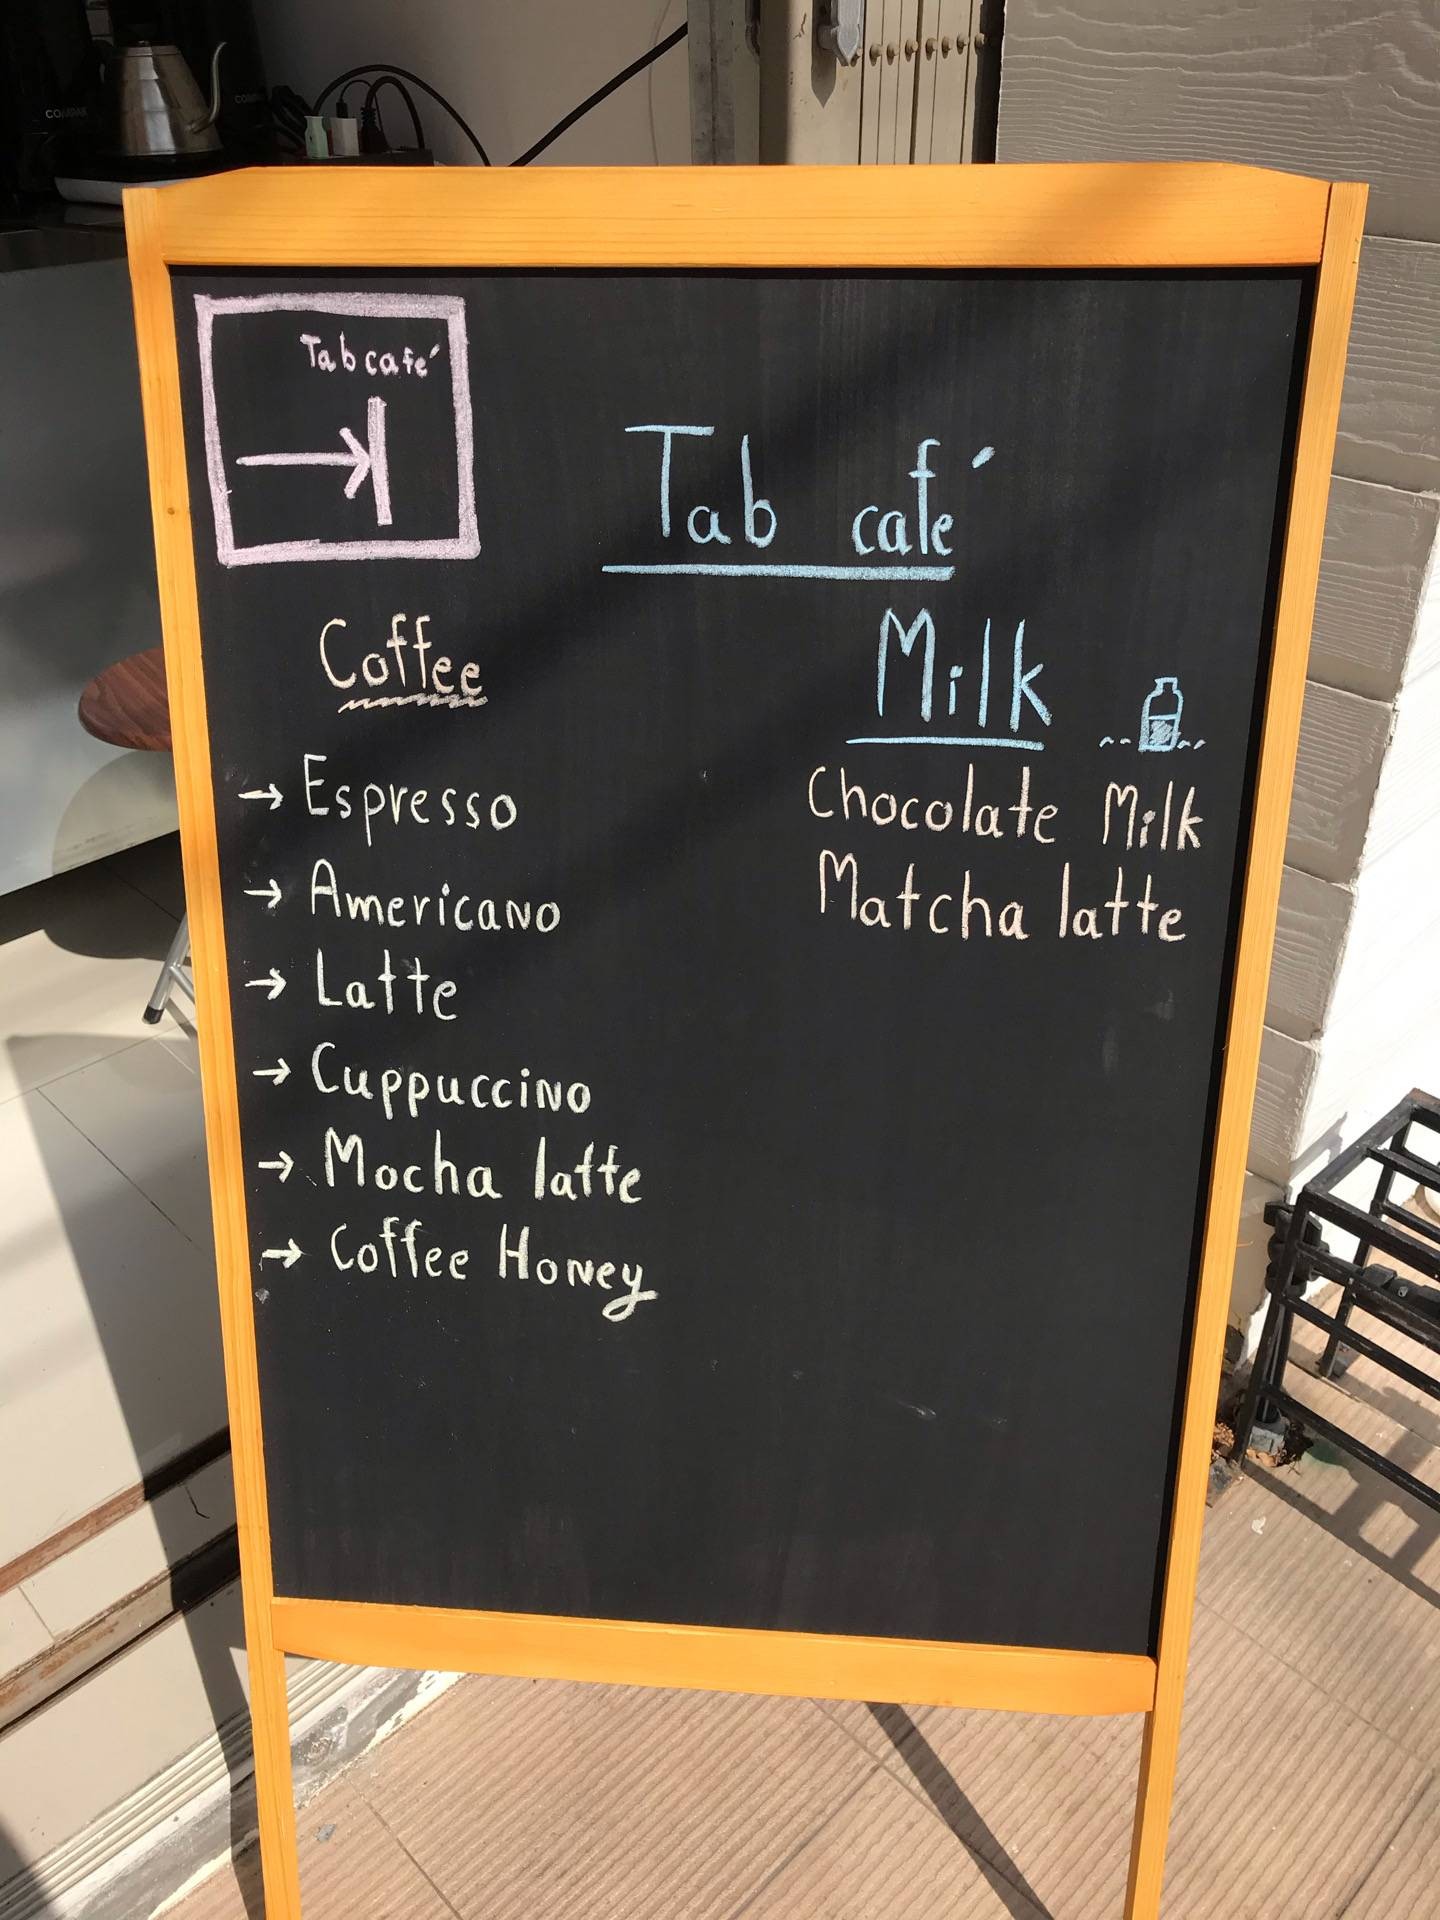 COMPAK
Tab café
Tab café
Coffee
→ Espresso
→ Americano
→ Latte
→ Cuppuccino
→ Mocha latte
→ Coffee Honey
Milk
Chocolate Milk
Matcha latte